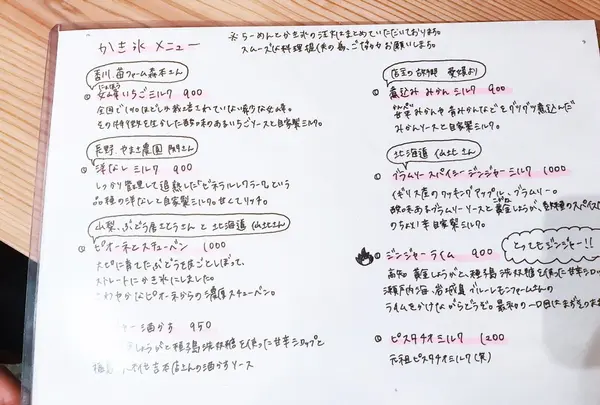 かき氷 メニュー
※らーめんとかき氷の注文はまとめていただいております。
スムーズな料理提供の為、ご協力お願いします。
香川 苺ファーム森本さん
女峰いちごミルク 900
にょほう
全国で
ほどしか栽培されていない希少な女峰。
その
を生かした酸味のあるいちごソースと自家製ミルク。
長野 やまさ農園
さん
洋なしミルク 900
しっかり管理して追熟した「ミネラルレクラーク」という
品種の洋なしと自家製ミルク。甘くてリッチ。
山梨 ぶどう屋
さんと北海道 仙北さん
ピオーネとスチューベン 1000
大切に育てたぶどうをまるごとしぼって、
ストレートにかき氷にしました。
さわやかなピオーネからの濃厚スチューベン。
ー酒かす 950
しょうがと種子島洗双糖を使った甘辛シロップと
吉本店さんの酒かすソース
店主の故郷 愛媛より
煮込みみかんミルク 900
甘平みかんや青みかんなどをグツグツ煮込んだ
かんぺい
みかんソースと自家製ミルク。
北海道 仙北さん
ブラムリースパイシージンジャーミルク 1000
イギリス産のクッキングアップル、ブラムリー。
酸味あるブラムリーソースと黄金しょうが、数種のスパイス
こがね
のちょい辛自家製ミルク。
とってもジンジャー!!
ジンジャーライム 900
高知 黄金しょうがと、種子島洗双糖を使った甘辛シロップ
瀬戸内海、岩城島
ブルーレモンファームさんの
ライムをかけながらどうぞ。最初の一口目はまぜず
ピスタチオミルク 1200
元祖ピスタチオミルク(笑)